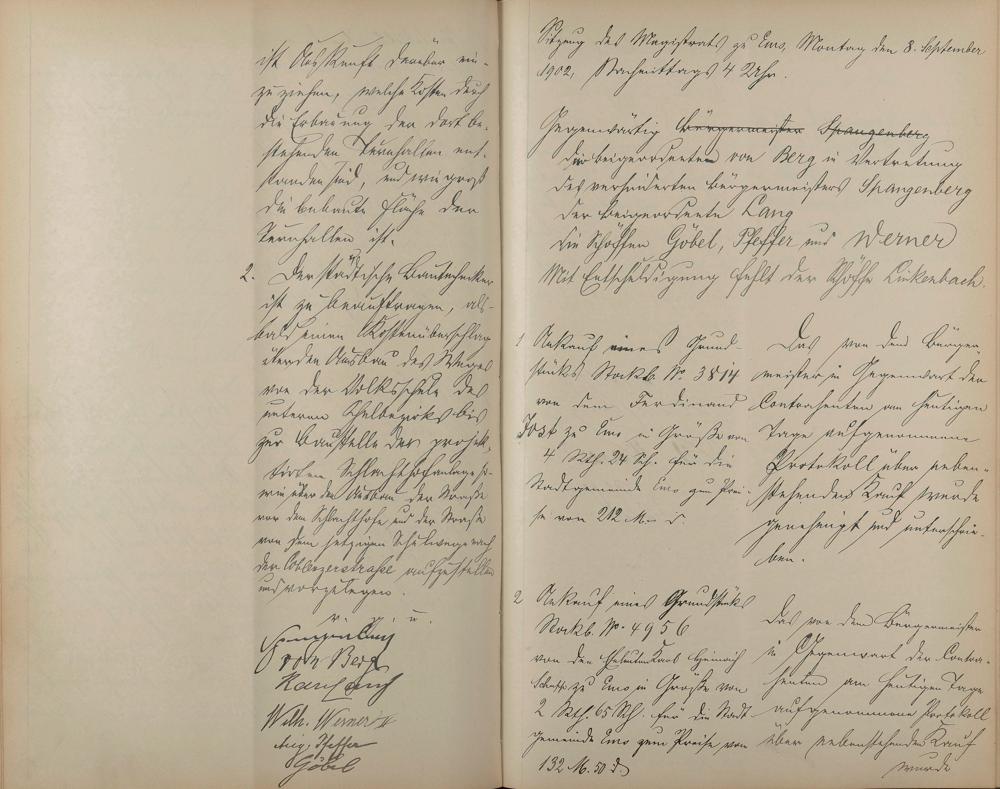 ist Auskunft darüber ein-
zuziehen, welche Kosten durch
die Erbauung der dort be-
stehenden Turnhallen ent-
standen sind, und wie groß
die bebaute Fläche der
Turnhallen ist.
2. Der städtische Bautechniker
ist zu beauftragen, als-
bald einen Kostenüberschlag
über den Ausbau des Weges
von der Volksschule des
unteren Schulbezirks bis
zur Baustelle der projek-
tirten Schlachthofanlage so-
wie über den Ausbau der Straße
vor dem Schlachthofe und der Straße
von dem jetzigen Schulwege nach
der Coblenzerstraße aufzustellen
und vorzulegen.
v. g. u.
Spangenberg
von Berg
Karl Lang
Wilh. Werner
Aug. Pfeffer
Göbel
Sitzung des Magistrats zu Ems, Montag den 8. September
1902, Nachmittags 4 Uhr.
Gegenwärtig Bürgermeister Spangenberg
der Beigeordnete von Berg in Vertretung
des verhinderten Bürgermeisters Spangenberg
der Beigeordnete Lang
die Schöffen Göbel, Pfeffer und Werner
Mit Entschuldigung fehlt der Schöffe Linkenbach.
1 Ankauf eines Grund-
stücks Stockb. No. 3814
von dem Ferdinand
Jost zu Ems in Größe von
4 Rth. 24 Sch. für die
Stadtgemeinde Ems zum Prei-
se von 212 M.
Das von dem Bürger-
meister in Gegenwart der
Contrahenten am heutigen
Tage aufgenommene
Protokoll über neben-
stehenden Kauf wurde
genehmigt und unterschrie-
ben.
2 Ankauf eines Grundstücks
Stockb. No. 4956
von den Eheleuten Karl Heinrich
zu Ems in Größe von
2 Rth. 65 Sch. für die Stadt-
gemeinde Ems zum Preise von
132 M. 50 d.
Das von dem Bürgermeister
in Gegenwart der Contra-
henten am heutigen Tage
aufgenommene Protokoll
über nebenstehenden Kauf
wurde